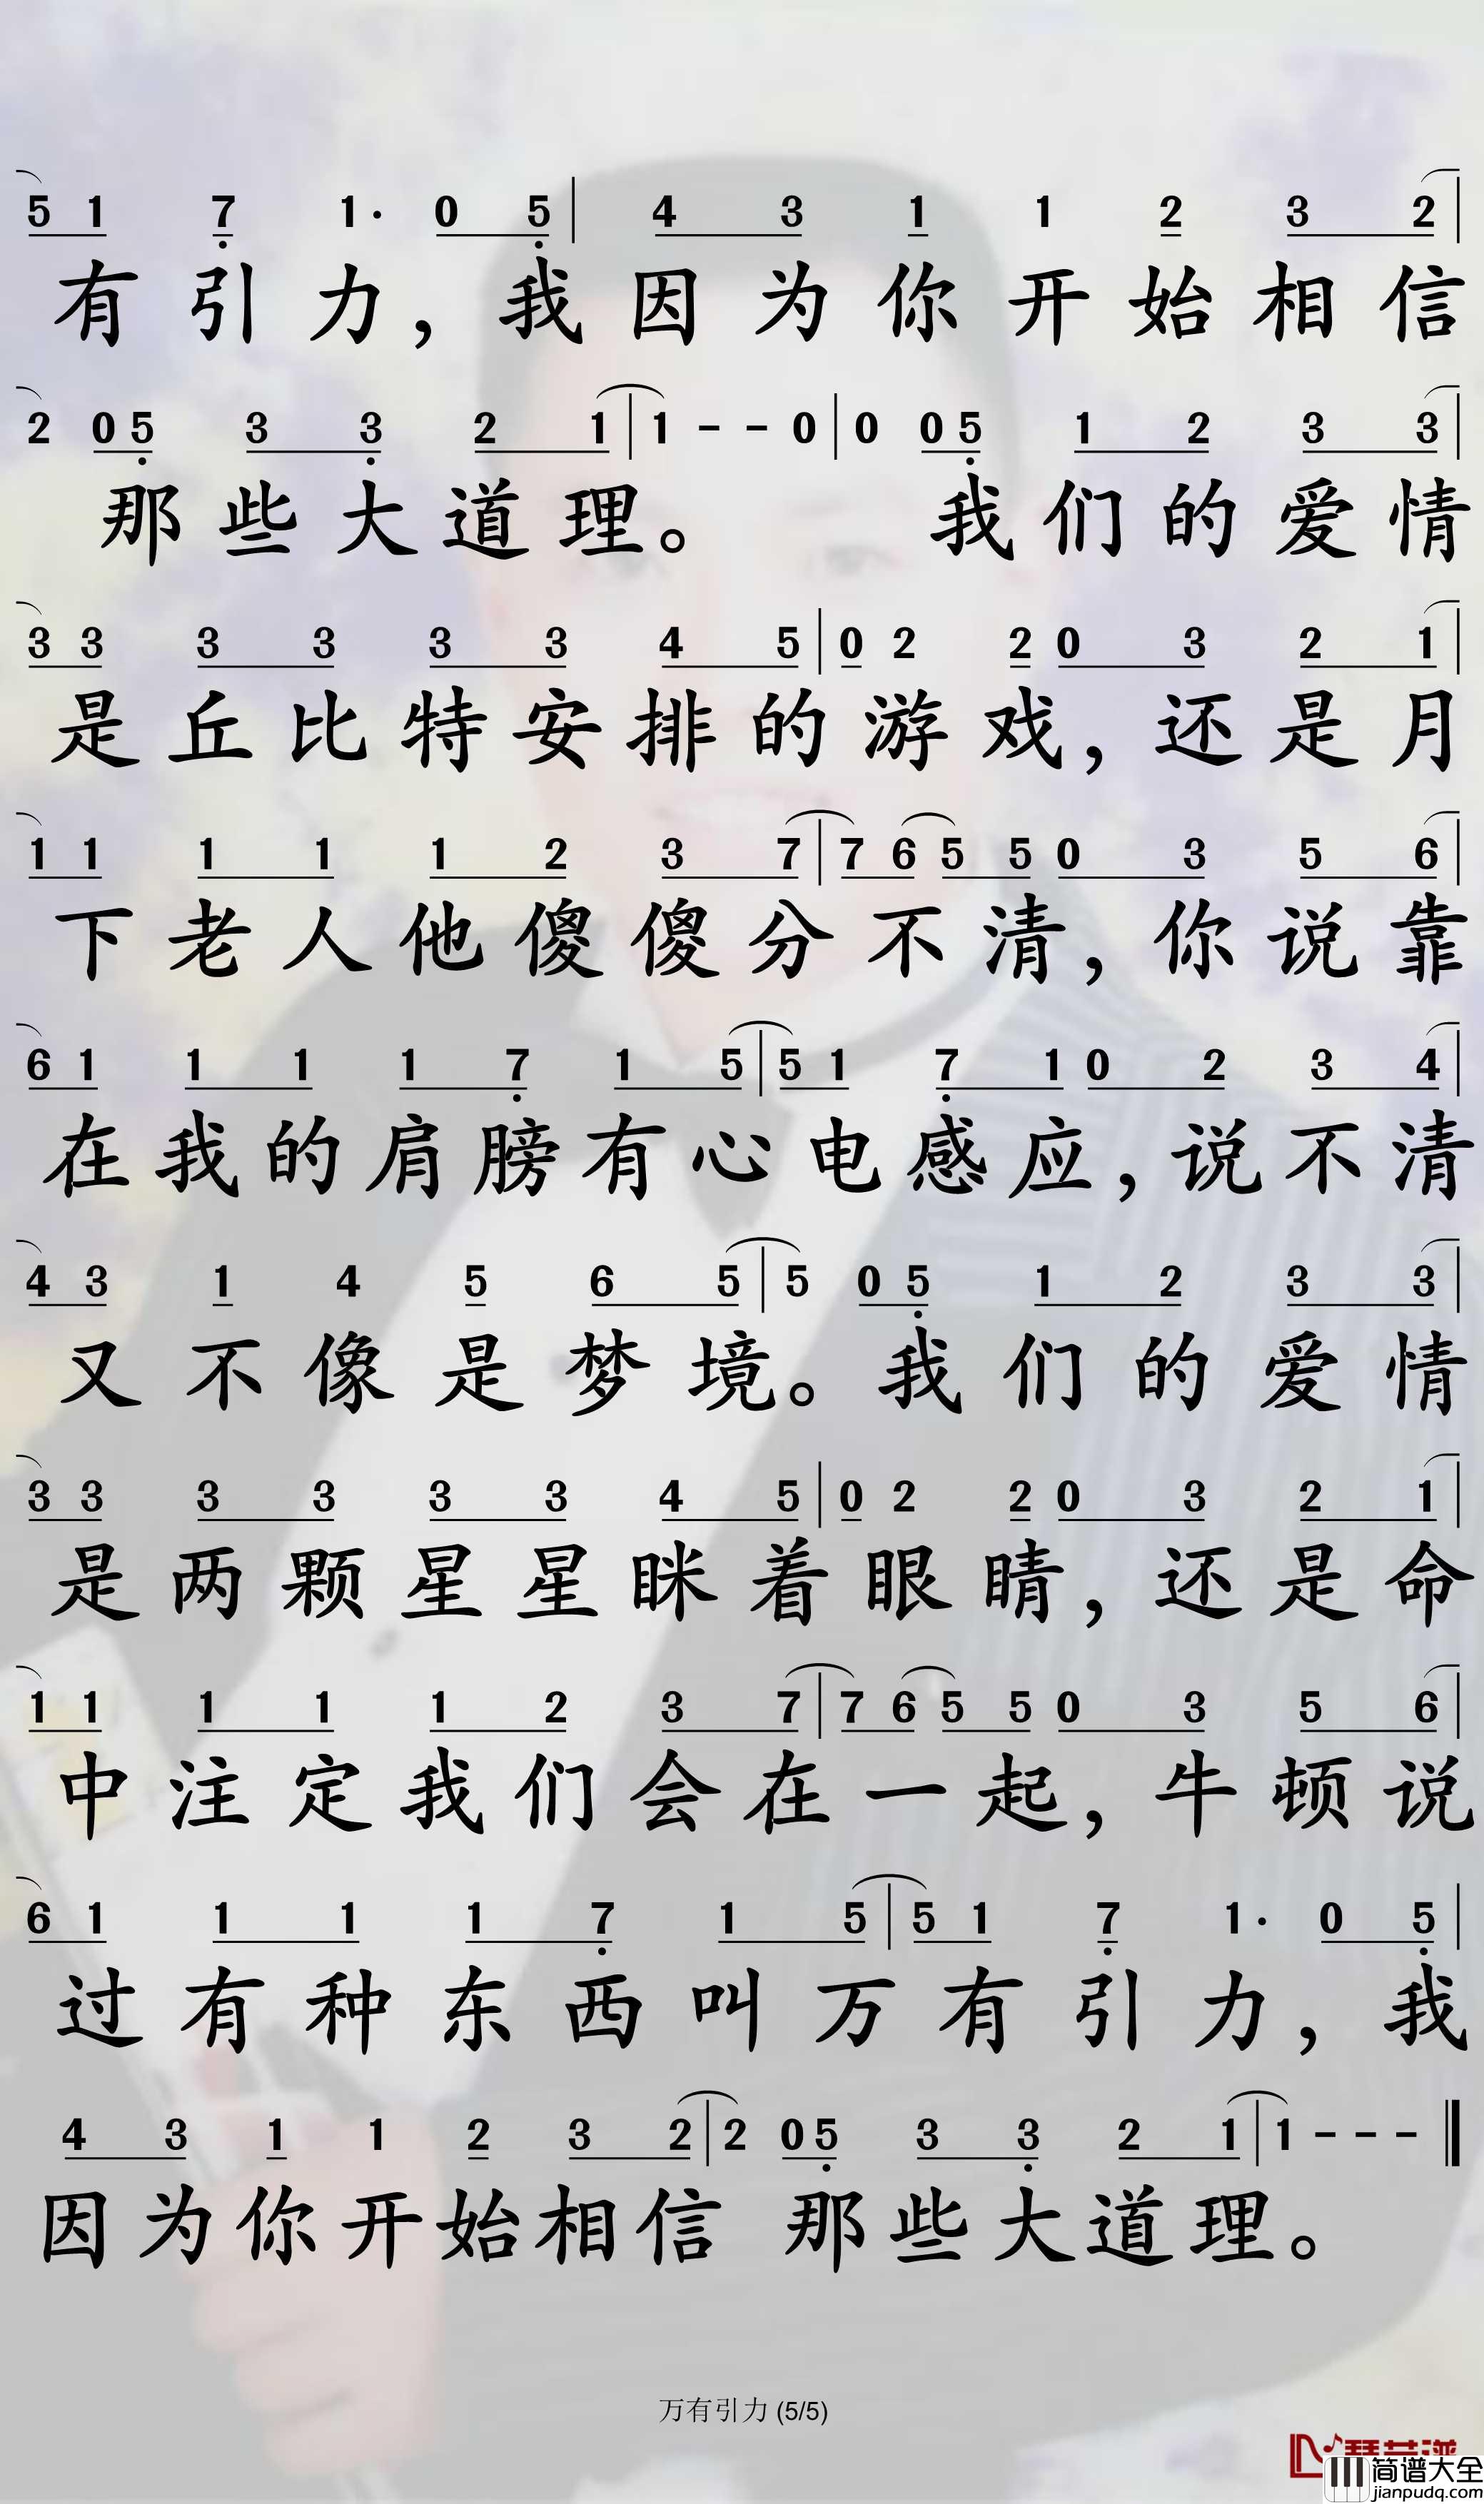 5 1 7 1· 0 5 | 4 3 1 1 2 3 2 |
有引力，我因为你开始相信
2 0 5 3 3 2 1 | 1 - - 0 | 0 0 5 1 2 3 3 |
那些大道理。 我们的爱情
3 3 3 3 3 3 4 5 | 0 2 2 0 3 2 1 |
是丘比特安排的游戏，还是月
1 1 1 1 1 2 3 7 | 7 6 5 5 0 3 5 6 |
下老人他傻傻分不清，你说靠
6 1 1 1 1 7 1 5 | 5 1 7 1 0 2 3 4 |
在我的肩膀有心电感应，说不清
4 3 1 4 5 6 5 | 5 0 5 1 2 3 3 |
又不像是梦境。我们的爱情
3 3 3 3 3 3 4 5 | 0 2 2 0 3 2 1 |
是两颗星星眯着眼睛，还是命
1 1 1 1 1 2 3 7 | 7 6 5 5 0 3 5 6 |
中注定我们会在一起，牛顿说
6 1 1 1 1 7 1 5 | 5 1 7 1· 0 5 |
过有种东西叫万有引力，我
4 3 1 1 2 3 2 | 2 0 5 3 3 2 1 | 1 - - - ‖
因为你开始相信 那些大道理。
万有引力 (5/5)
简谱大全
jianpudq.com